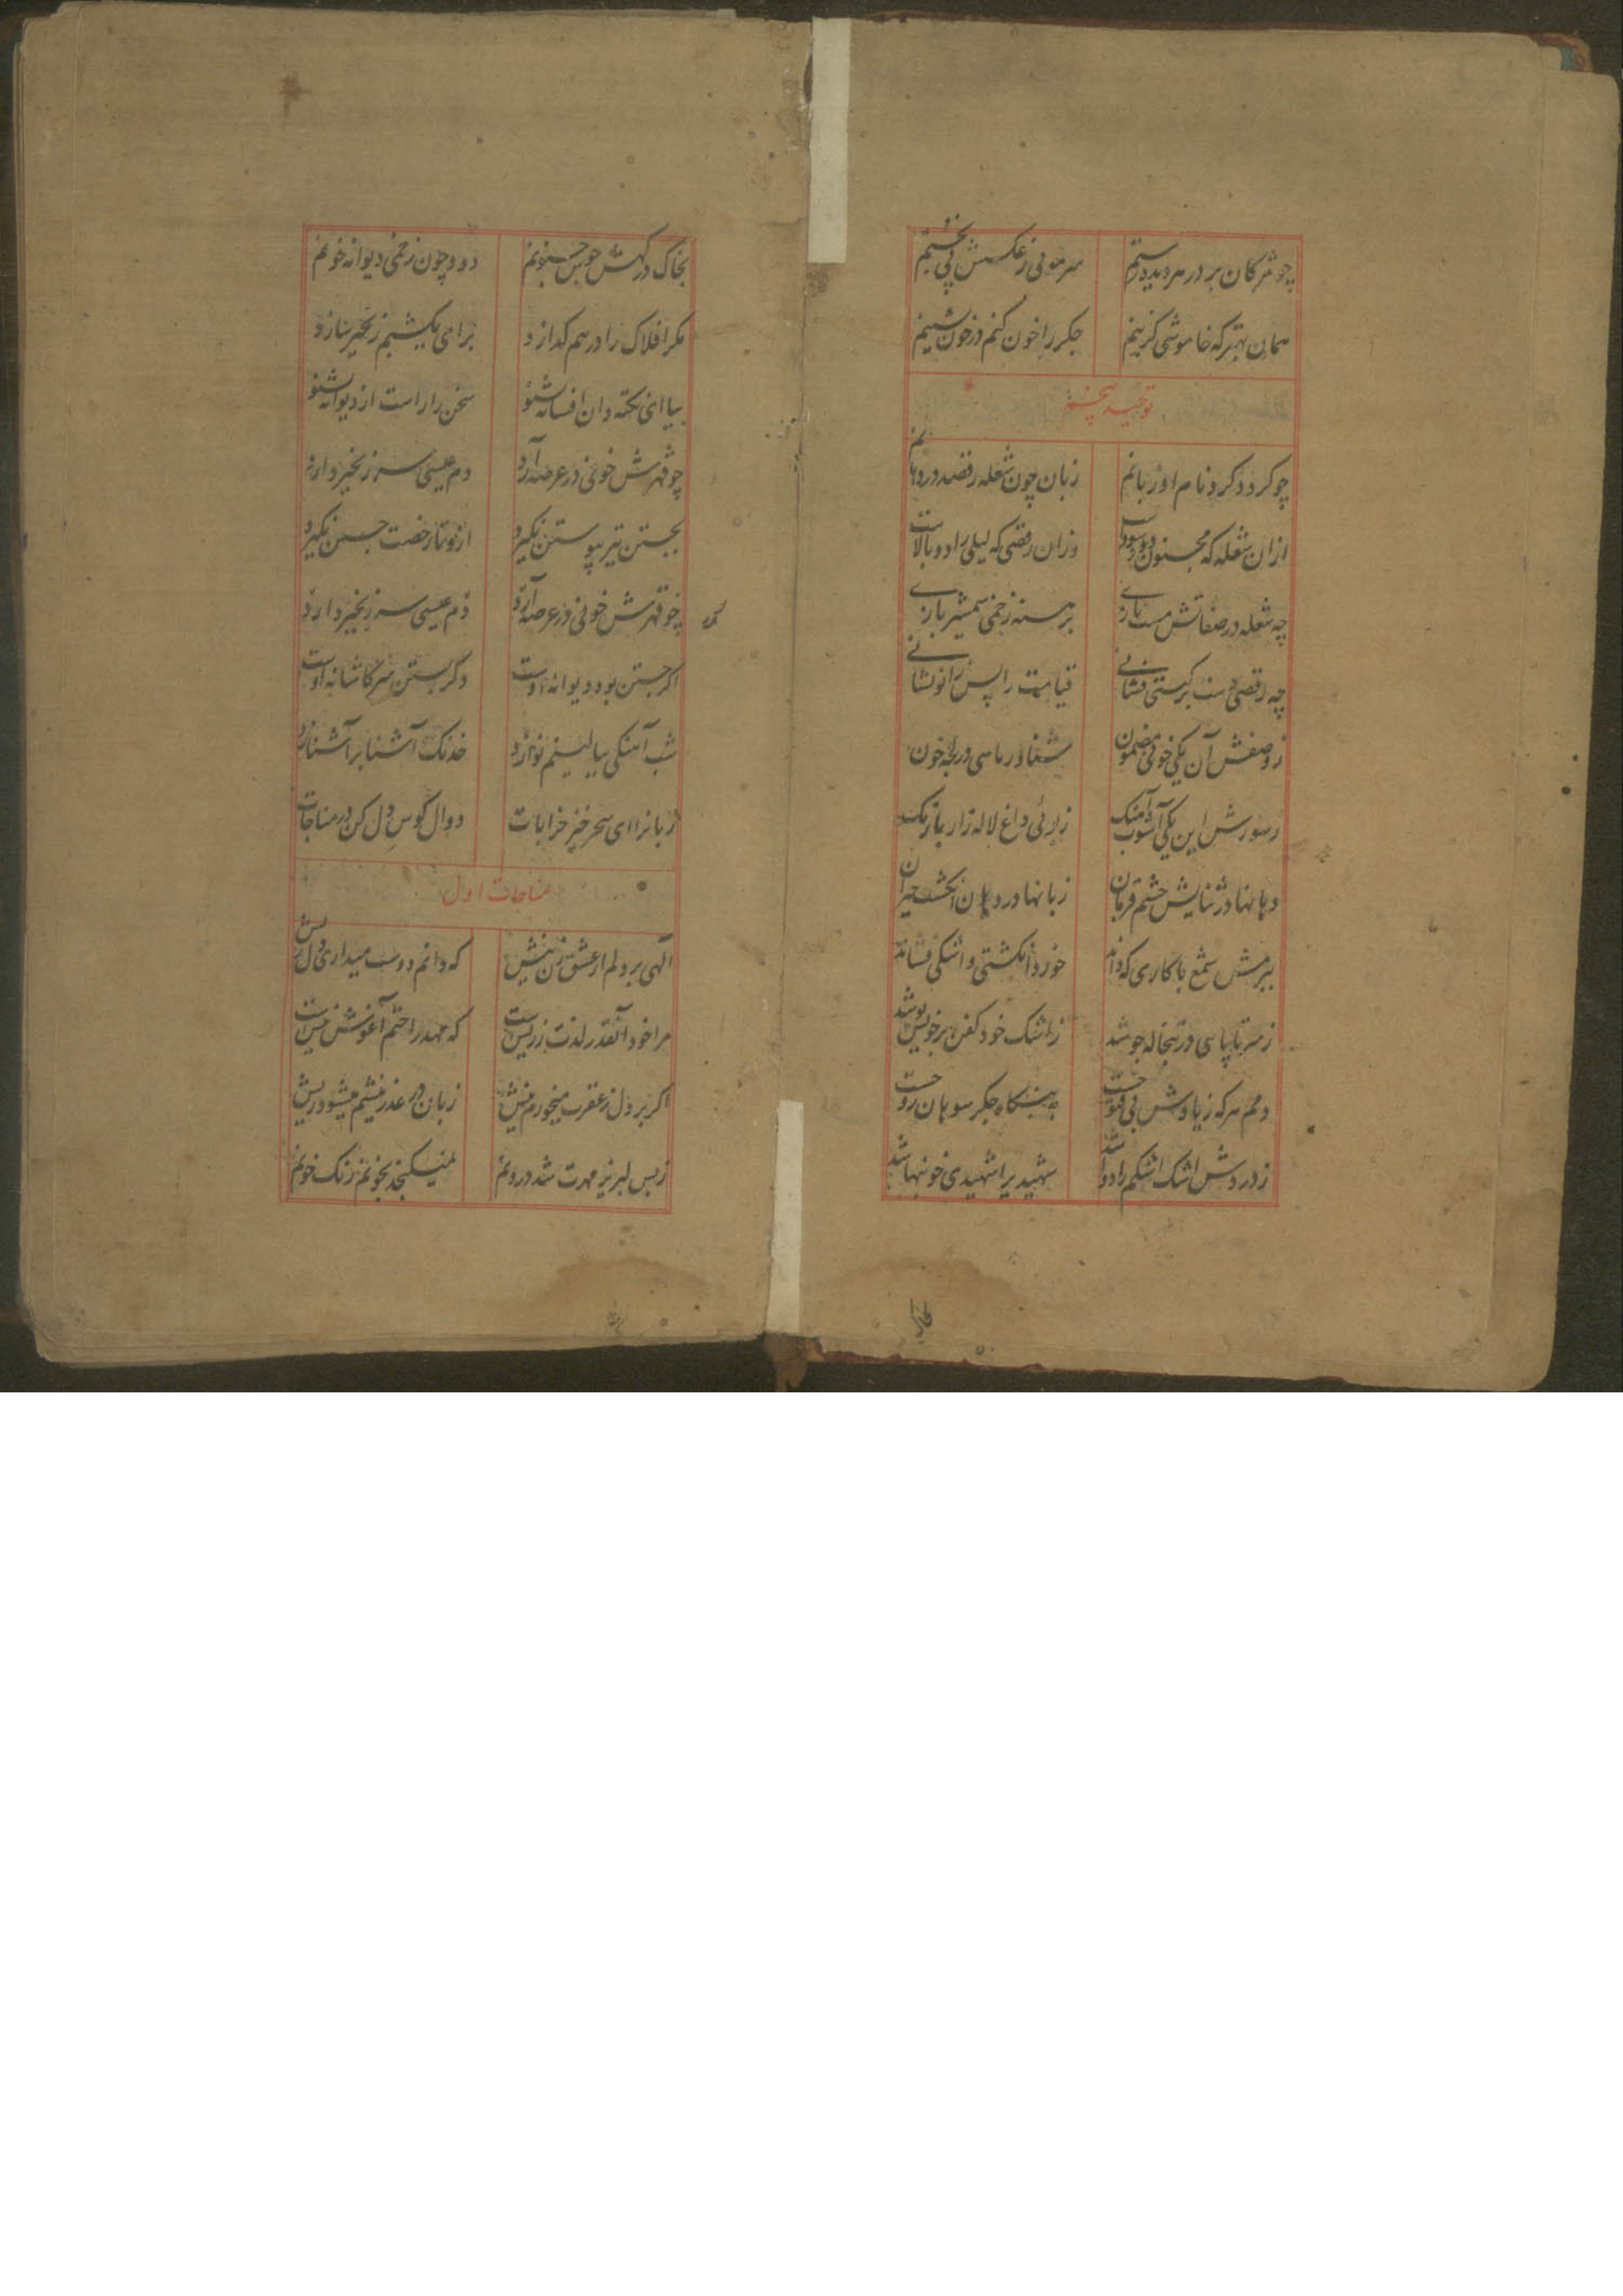 چو مژکان بر در هر دیده رستم سرموئی ز عکسش پی نجستم
همان بهتر که خاموشی گزینم جکر را خون کنم در خون نشینم
توحید پنجم
چو کردد کرد نام او زبانم زبان چون شعله رقصد در دهانم
ازان شعله که مجنون دود سوداست وزان رقصی که لیلی را دو بالاست
چه شعله در صفاتش مست بازی برهنه زخمی شمشیر بازی
چه رقصی دست بر کیتی فشانی قیامت را پس زانو نشانی
ز وصفش آن یکی خونی مضمون شناور ماهی در لجه خون
ز سورش این یکی آشوب آهنک داغ لاله زار بازنک
دهانها در ثنایش چشم قربان زبانها در دهان انکشت حیران
ببزمش شمع با کاری که داند خورد انکشتی و اشکی فشاند
ز سر تا پای در تبخاله جوشد ز اشک خود کفن بر خویش پوشد
دمم هر که ز یادش بی فتوحست جکر سوهان روحست
ز دردش اشک اشکم را دوا شد شهیدیرا شهیدی خونبها شد
بخاک درکهش جنونم دود چون زخمی دیوانه خونم
مکر افلاک را در هم کدازد برای یکشبم زنجیر سازد
بیا ای نکته دان افسانه بشنو سخن راراست از دیوانه بشنو
چو قهرش خونی در عرصه آرد دم عیسی سر زنجیر دارد
بجستن تیر پیوستن نکیرد ازو تا رخصت جستن نکیرد
چو قهرش خونی در عرصه آرد دم عیسی سر زنجیر دارد
اکر جستن بود دیوانه اوست دکر بستن سر کاشانه اوست
شب آهنکی ببالینم نوازد خدنک آشنا بر آشنا زد
زبانرا ای سحر خیز خرابات دوال کوس دل کن در مناجات
مناجات اول
الهی بر دلم از عشق زن نیش که دانم دوست میداری دل ریش
مرا خود آنقدر لذت ز ریش است که مهد راحتم آغوش نیش است
اکر بر دل ز عقرب میخورم نیش زبان در عذر نیشم میشود ریش
ز بس لبریز مهرت شد درونم نمیکنجد بخونم رنک خونم